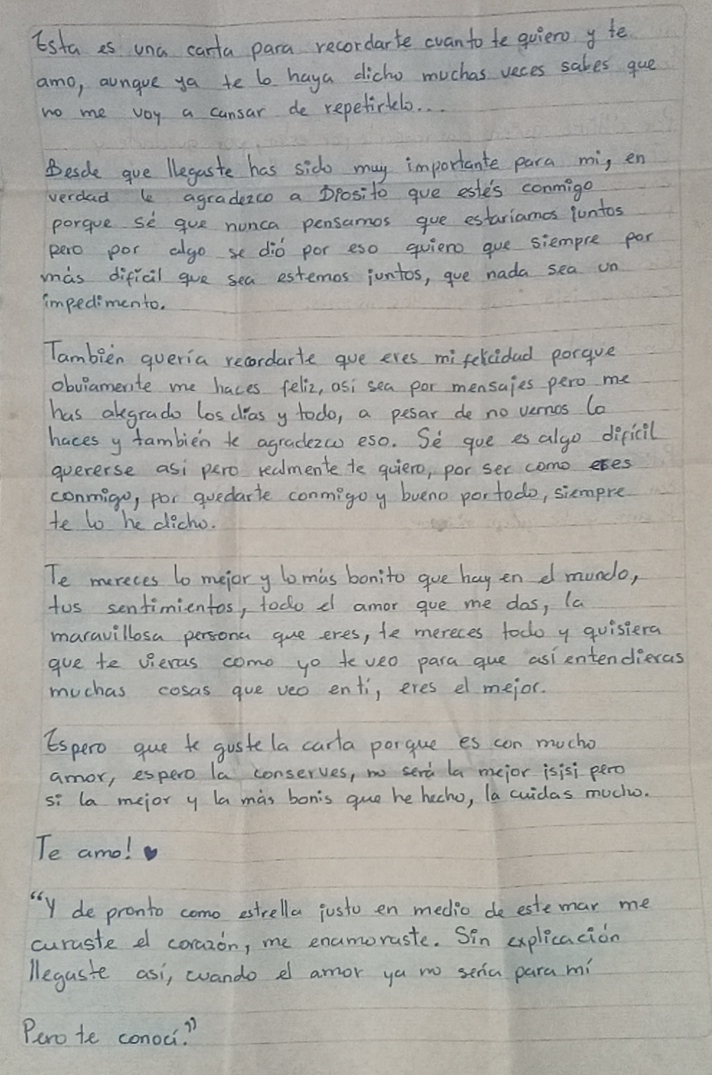 Esta es una carta para recordarte cuanto te quiero y te
amo, aunque ya te lo haya dicho muchas veces sabes que
no me voy a cansar de repetirtelo...
Desde que llegaste has sido muy importante para mi, en
verdad le agradezco a Diosito que estés conmigo
porque sé que nunca pensamos que estaríamos juntos
pero por algo se dió por eso quiero que siempre por
más dificil que sea estemos juntos, que nada sea un
impedimento.
También quería recordarte que eres mi felicidad porque
obviamente me haces feliz, así sea por mensajes pero me
has alegrado los días y todo, a pesar de no vernos lo
haces y también te agradezco eso. Sé que es algo difícil
quererse asi pero realmente te quiero, por ser como eres
conmigo, por quedarte conmigo y bueno por todo, siempre
te lo he dicho.
Te mereces lo mejor y lo más bonito que hay en el mundo,
tus sentimientos, todo el amor que me das, la
maravillosa persona que eres, te mereces todo y quisiera
que te vieras como yo te veo para que así entendieras
muchas cosas que veo en ti, eres el mejor.
Espero que te guste la carta porque es con mucho
amor, espero la conserves, no será la mejor isisi pero
si la mejor y la más bonis que he hecho, la cuidas mucho.
Te amo! ♥
"Y de pronto como estrella justo en medio de este mar me
curaste el corazón, me enamoraste. Sin explicación
llegaste así, cuando el amor ya no sería para mí
Pero te conocí."